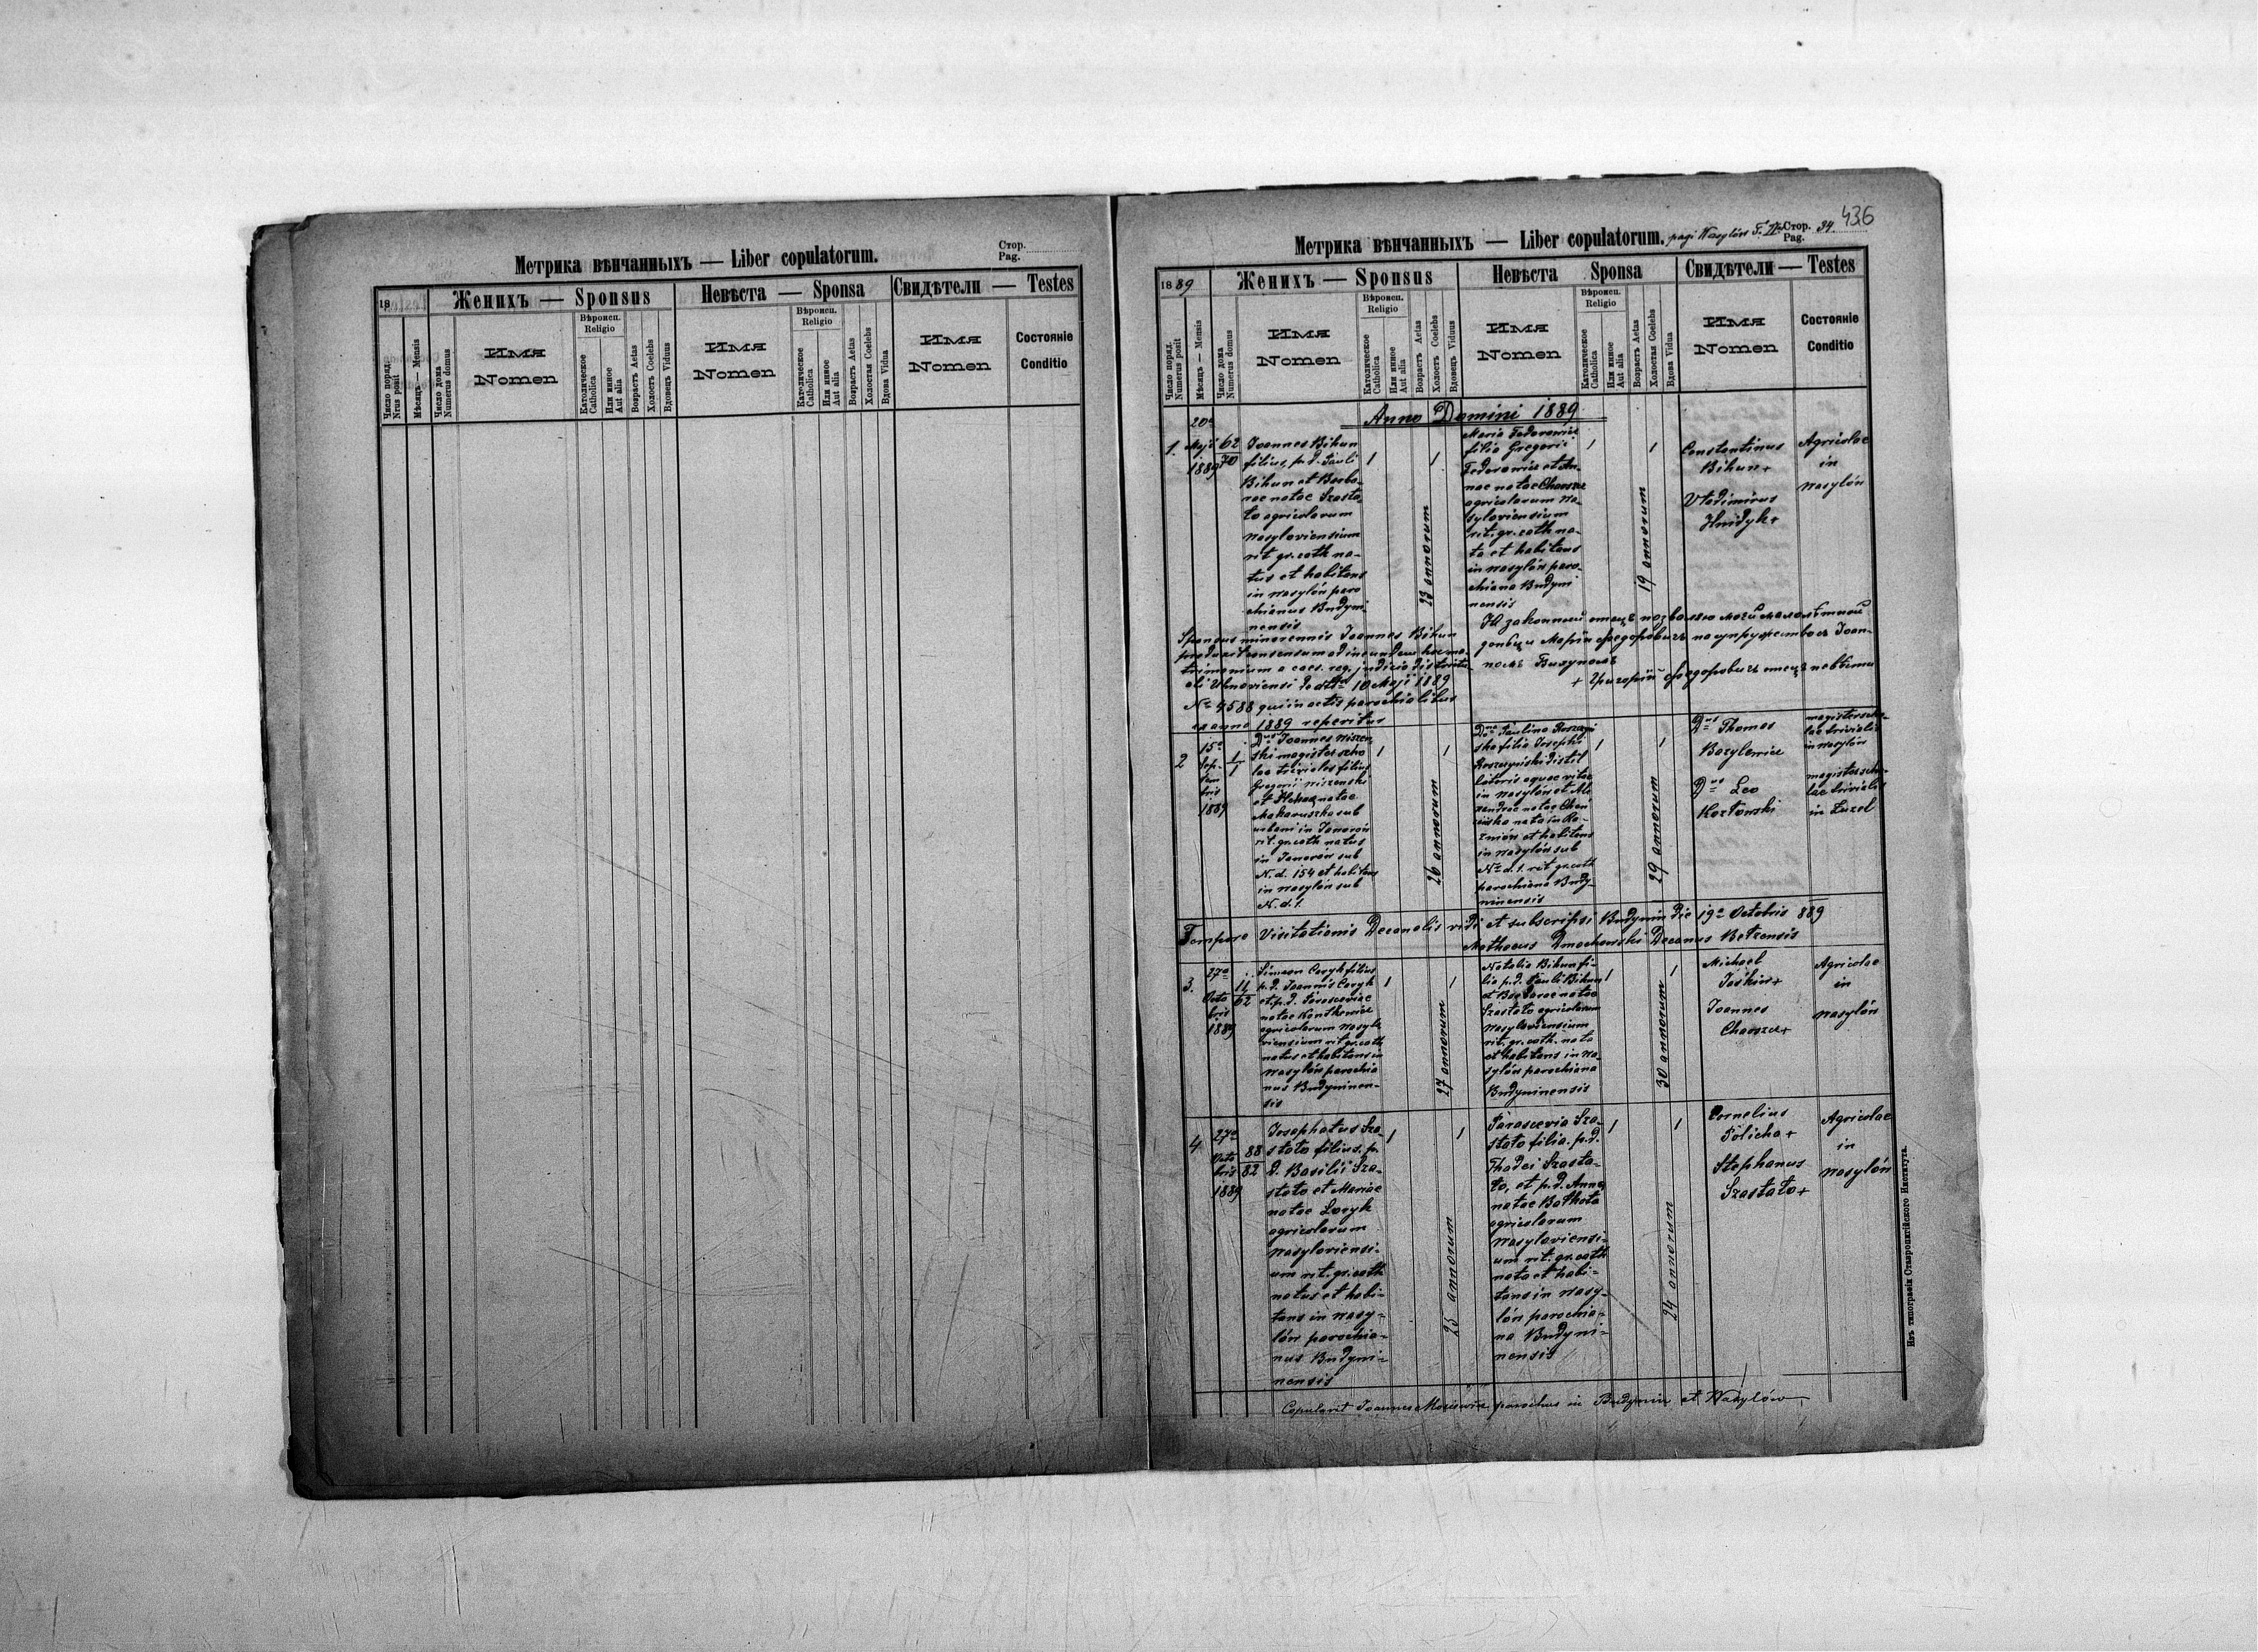 Метрика вѣнчанныхъ — Liber copulatorum.
Стор.
Pag.
18
Женихъ — Sponsus
Невѣста — Sponsa
Свидѣтели — Testes
Число поряд.
Nrus posit
Мѣсяцъ — Mensis
Число дома
Numerus domus
Имя
Nomen
Вѣроисп.
Religio
Католическое
Catholica
Или инное
Aut alia
Возрастъ Aetas
Холостъ Coelebs
Вдовецъ Viduus
Имя
Nomen
Вѣроисп.
Religio
Католическое
Catholica
Или инное
Aut alia
Возрастъ Aetas
Холостая Coelebs
Вдова Vidua
Имя
Nomen
Состояніе
Conditio
436
Метрика вѣнчанныхъ — Liber copulatorum. pagi Wasylów
Стор.
Pag. 34.
1889
Женихъ — Sponsus
Невѣста Sponsa
Свидѣтели — Testes
Число поряд.
Numerus posit
Мѣсяцъ — Mensis
Число дома
Numerus domus
Имя
Nomen
Вѣроисп.
Religio
Католическое
Catholica
Или инное
Aut alia
Возрастъ Aetas
Холостъ Coelebs
Вдовецъ Viduus
Имя
Nomen
Вѣроисп.
Religio
Католическое
Catholica
Или инное
Aut alia
Возрастъ Aetas
Холостая Coelebs
Вдова Vidua
Имя
Nomen
Состояніе
Conditio
Anno Domini 1889
1.
20a
Maji
1889
62
70
Joannes Bihun
filius, p. d. Pauli
Bihun et Barba-
rae natae Szasta
ło agricolarum
Wasyloviensium
rit. gr. cath. na-
tus et habitans
in Wasylów paro
chianus Budyni
nensis
1
23 annorum
1
Maria Fedorowicz
filia Gregorii
Fedorowicz et An-
nae natae
agricolarum Wa-
syloviensium
rit. gr. cath. na-
ta et habitans
in Wasylów paro-
chiana Budyni
nensis
1
19 annorum
1
Constantinus
Bihun +
Vladimirus
Hnidyk +
Agricolae
in
Wasylów
Sponsus minorennis Joannes Bihun
produxit consensum ad ineundum hoc ma-
trimonium a caes. reg. judicio districtu
ali Uhnoviensi ddto 10 Maji 1889
No 4588 qui in actis parochialibus
ex anno 1889 reperitur
Я законный отецъ позваляю моей малолѣтной
донци Маріи Федоровичъ на супружество съ Іоан-
номъ Бигуномъ
+ Григорій Федоровичъ отецъ невѣсты
2
15a
Sep-
tem
bris
1889
1
1
Dnus Joannes Niszen
ski magister scho
lae trivialis filius
Gregorii Niszenski
et natae
Makaruszka sub
urbani in Janorów
rit. gr. cath. natus
in Janorów sub
N. d. 154 et habitans
in Wasylów sub
N. d. 1.
1
26 annorum
1
Dna Paulina
ska filia Josephi
distil
latoris aquae vitae
in Wasylów et Ale
xandrae natae
nata in
et habitans
in Wasylów sub
No d. 1. rit. gr. cath.
parochiana Budy-
ninensis
1
29 annorum
1
Dnus Thomas
Bazylewicz
Dnus Leo
Kozłowski
magister scho-
lae trivialis
in Wasylów
magister scho-
lae trivialis
in Żuzel
Tempore Visitationis Decanalis vidi et subscripsi Budynin die 19a Octobris 889
Mathaeus Dmochowski Decanus Bełzensis
3.
27a
Octo
bris
1889
11
62
Simeon Coryk filius
p. d. Joannis Coryk
et p. d. Parasceviae
natae
agricolarum Wasylo
viensium rit. gr. cath.
natus et habitans in
Wasylów parochia
nus Budyninen-
sis
1
27 annorum
1
Natalia Bihun fi-
lia p. d. Pauli Bihun
et Barbarae natae
Szastało agricolarum
Wasyloviensium
rit. gr. cath. nata
et habitans in Wa-
sylów parochiana
Budyninensis
1
30 annorum
1
Michael
Joannes
Agricolae
in
Wasylów
4.
27a
Octo
bris
1889
88
82
Josaphatus Sza
stało filius. p.
d. Basilii Sza-
stało et Mariae
natae Loryk
agricolarum
Wasyloviensi-
um rit. gr. cath.
natus et habi-
tans in Wasy-
lów parochia-
nus Budyni-
nensis
1
25 annorum
1
Parascevia Sza-
stało filia. p. d.
Thadei Szasta-
ło, et p. d. Anna
natae
agricolarum
Wasyloviensi-
um rit. gr. cath.
nata et habi-
tans in Wasy-
lów parochia-
na Budyni-
nensis
1
24 annorum
1
Cornelius
Policha +
Stephanus
Szastało +
Agricolae
in
Wasylów
Copulavit Joannes parochus in Budynin et Wasylów
Изъ типографіи Ставропигійского Института.